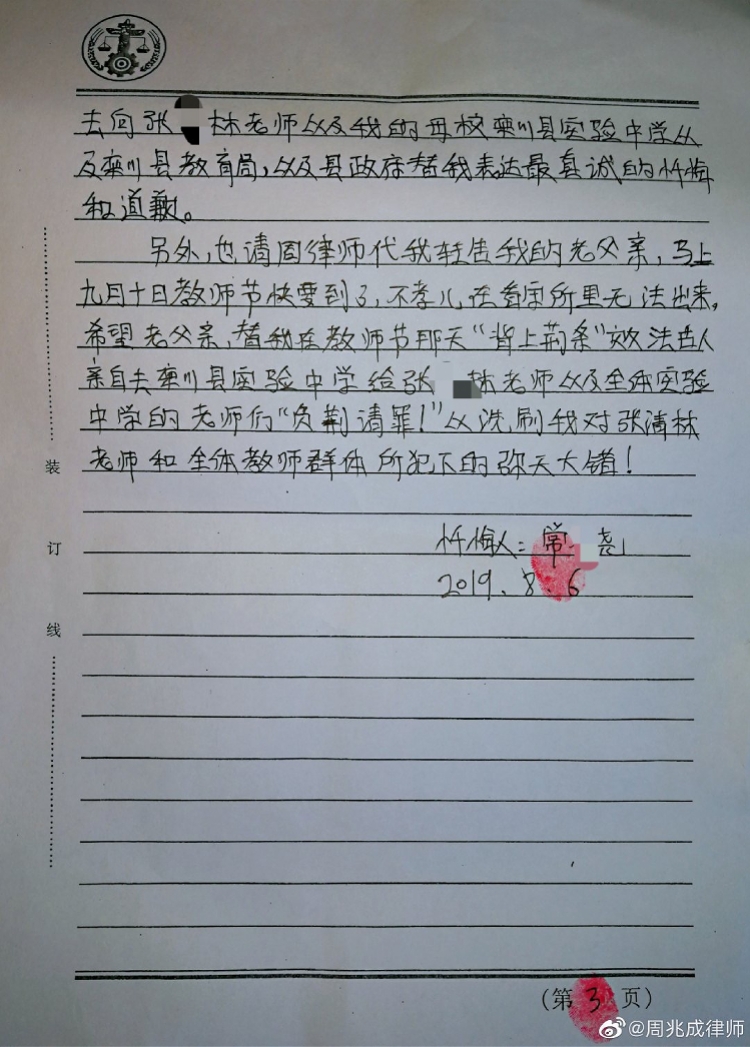 去向张 林老师以及我的母校栾川县实验中学以
及栾川县教育局，以及县政府替我表达最真诚的忏悔
和道歉。
另外，也请周律师代我转告我的老父亲，马上
九月十日教师节快要到了，不孝儿在看守所里无法出来，
希望老父亲，替我在教师节那天“背上荆条”效法古人
亲自去栾川县实验中学给张 林老师以及全体实验
中学的老师们“负荆请罪！”以洗刷我对张清林
老师和全体教师群体所犯下的弥天大错！
装
订
线
忏悔人：常 尧
2019.8.6
（第 3 页）
@周兆成律师